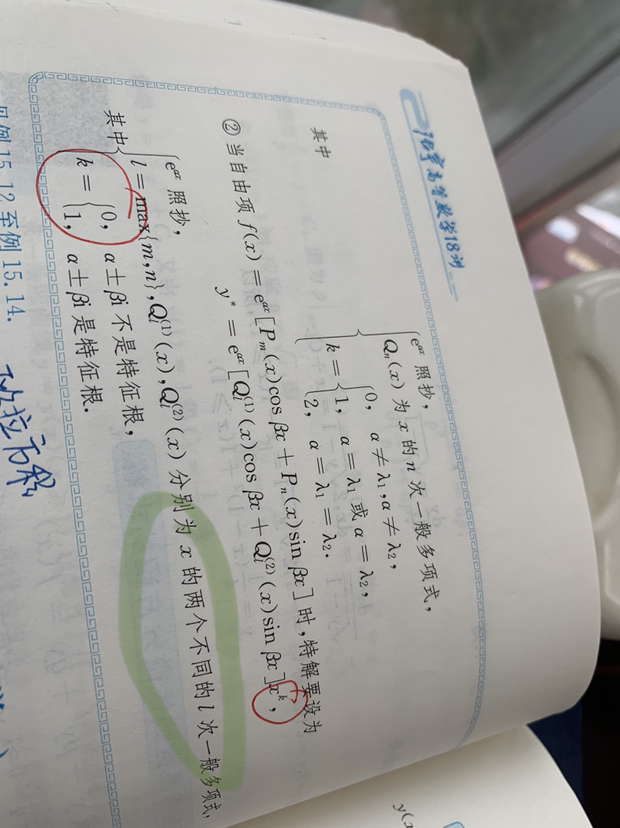 张宇高等数学18讲
e^{αx} 照抄,
Q_n(x) 为 x 的 n 次一般多项式,
其中
k = { 0, α ≠ λ_1, α ≠ λ_2,
1, α = λ_1 或 α = λ_2,
2, α = λ_1 = λ_2.
② 当自由项 f(x) = e^{αx}[P_m(x)cos βx + P_n(x)sin βx] 时, 特解要设为
y* = e^{αx}[Q_l^{(1)}(x)cos βx + Q_l^{(2)}(x)sin βx]x^k,
e^{αx} 照抄,
其中
l = max{m,n}, Q_l^{(1)}(x), Q_l^{(2)}(x) 分别为 x 的两个不同的 l 次一般多项式,
k = { 0, α ± βi 不是特征根,
1, α ± βi 是特征根.
见例 15.12 至例 15.14.
y(x